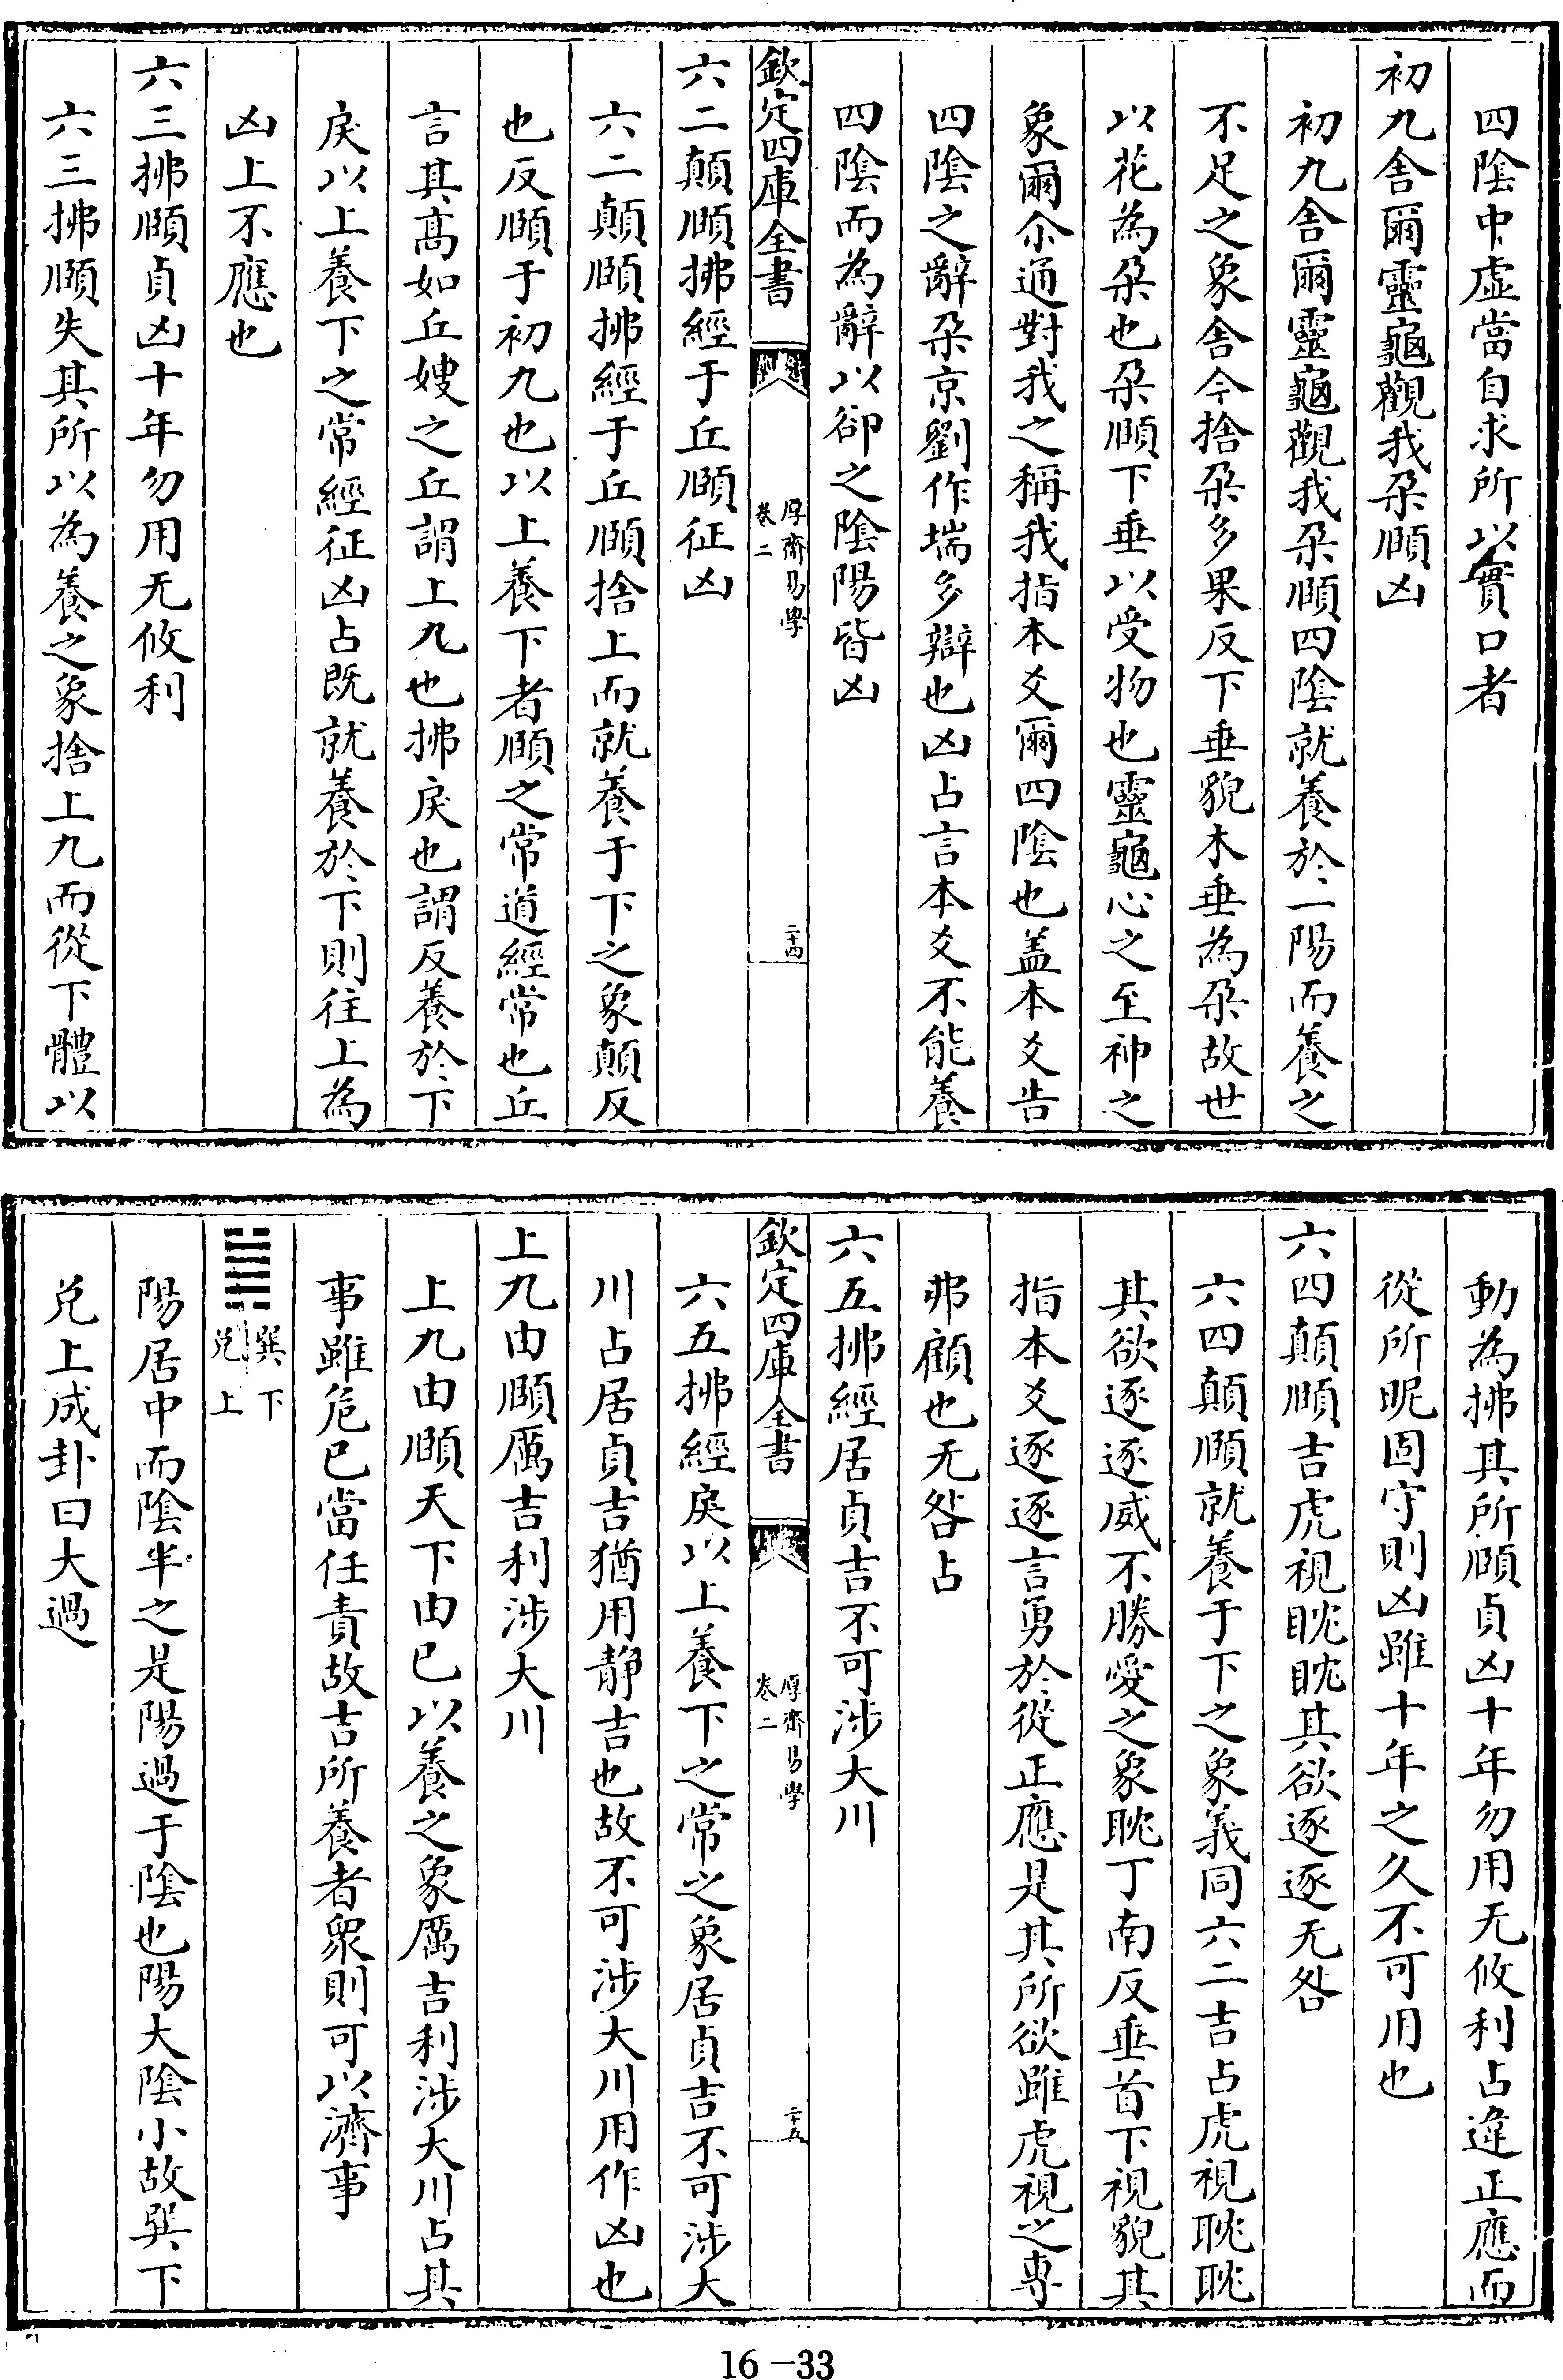 四陰中虛當自求所以實口者
初九舍爾靈龜觀我朶頤凶
初九舍爾靈龜觀我朶頤四陰就養於一陽而養之
不足之象舍今捨朶多果反下垂貌木垂為朶故世
以花為朶也朶頤下垂以受物也靈龜心之至神之
象爾尒通對我之稱我指本爻爾四陰也盖本爻告
四陰之辭朶京劉作㙐多辯也凶占言本爻不能養
四陰而為辭以卻之陰陽皆凶
欽定四庫全書
厚齋易學
卷二
二十四
六二顛頤拂經于丘頤征凶
六二顛頤拂經于丘頤捨上而就養于下之象顛反
也反頤于初九也以上養下者頤之常道經常也丘
言其髙如丘嫂之丘謂上九也拂戾也謂反養於下
戾以上養下之常經征凶占既就養於下則往上為
凶上不應也
六三拂頤貞凶十年勿用无攸利
六三拂頤失其所以為養之象捨上九而從下體以
動為拂其所頤貞凶十年勿用无攸利占違正應而
從所昵固守則凶雖十年之久不可用也
六四顛頤吉虎視眈眈其欲逐逐无咎
六四顛頤就養于下之象義同六二吉占虎視耽耽
其欲逐逐威不勝愛之象耽丁南反垂首下視貌其
指本爻逐逐言勇於從正應是其所欲雖虎視之專
弗顧也无咎占
六五拂經居貞吉不可涉大川
欽定四庫全書
厚齋易學
卷二
二十五
六五拂經戾以上養下之常之象居貞吉不可涉大
川占居貞吉猶用静吉也故不可涉大川用作凶也
上九由頤厲吉利涉大川
上九由頤天下由已以養之象厲吉利涉大川占其
事雖危已當任責故吉所養者衆則可以濟事
巽下
兑上
陽居中而陰半之是陽過于陰也陽大陰小故巽下
兑上成卦曰大過
16-33